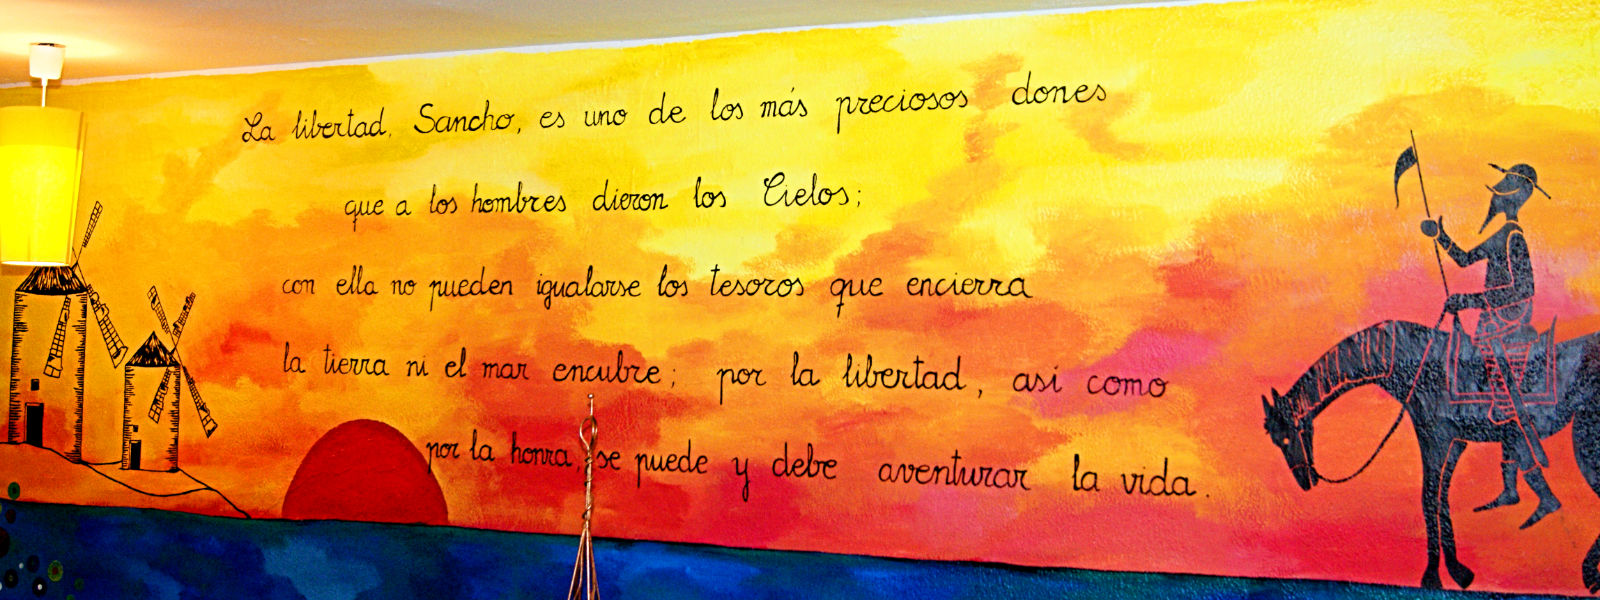 La libertad, Sancho, es uno de los más preciosos dones
que a los hombres dieron los Cielos;
con ella no pueden igualarse los tesoros que encierra
la tierra ni el mar encubre; por la libertad, así como
por la honra, se puede y debe aventurar la vida.